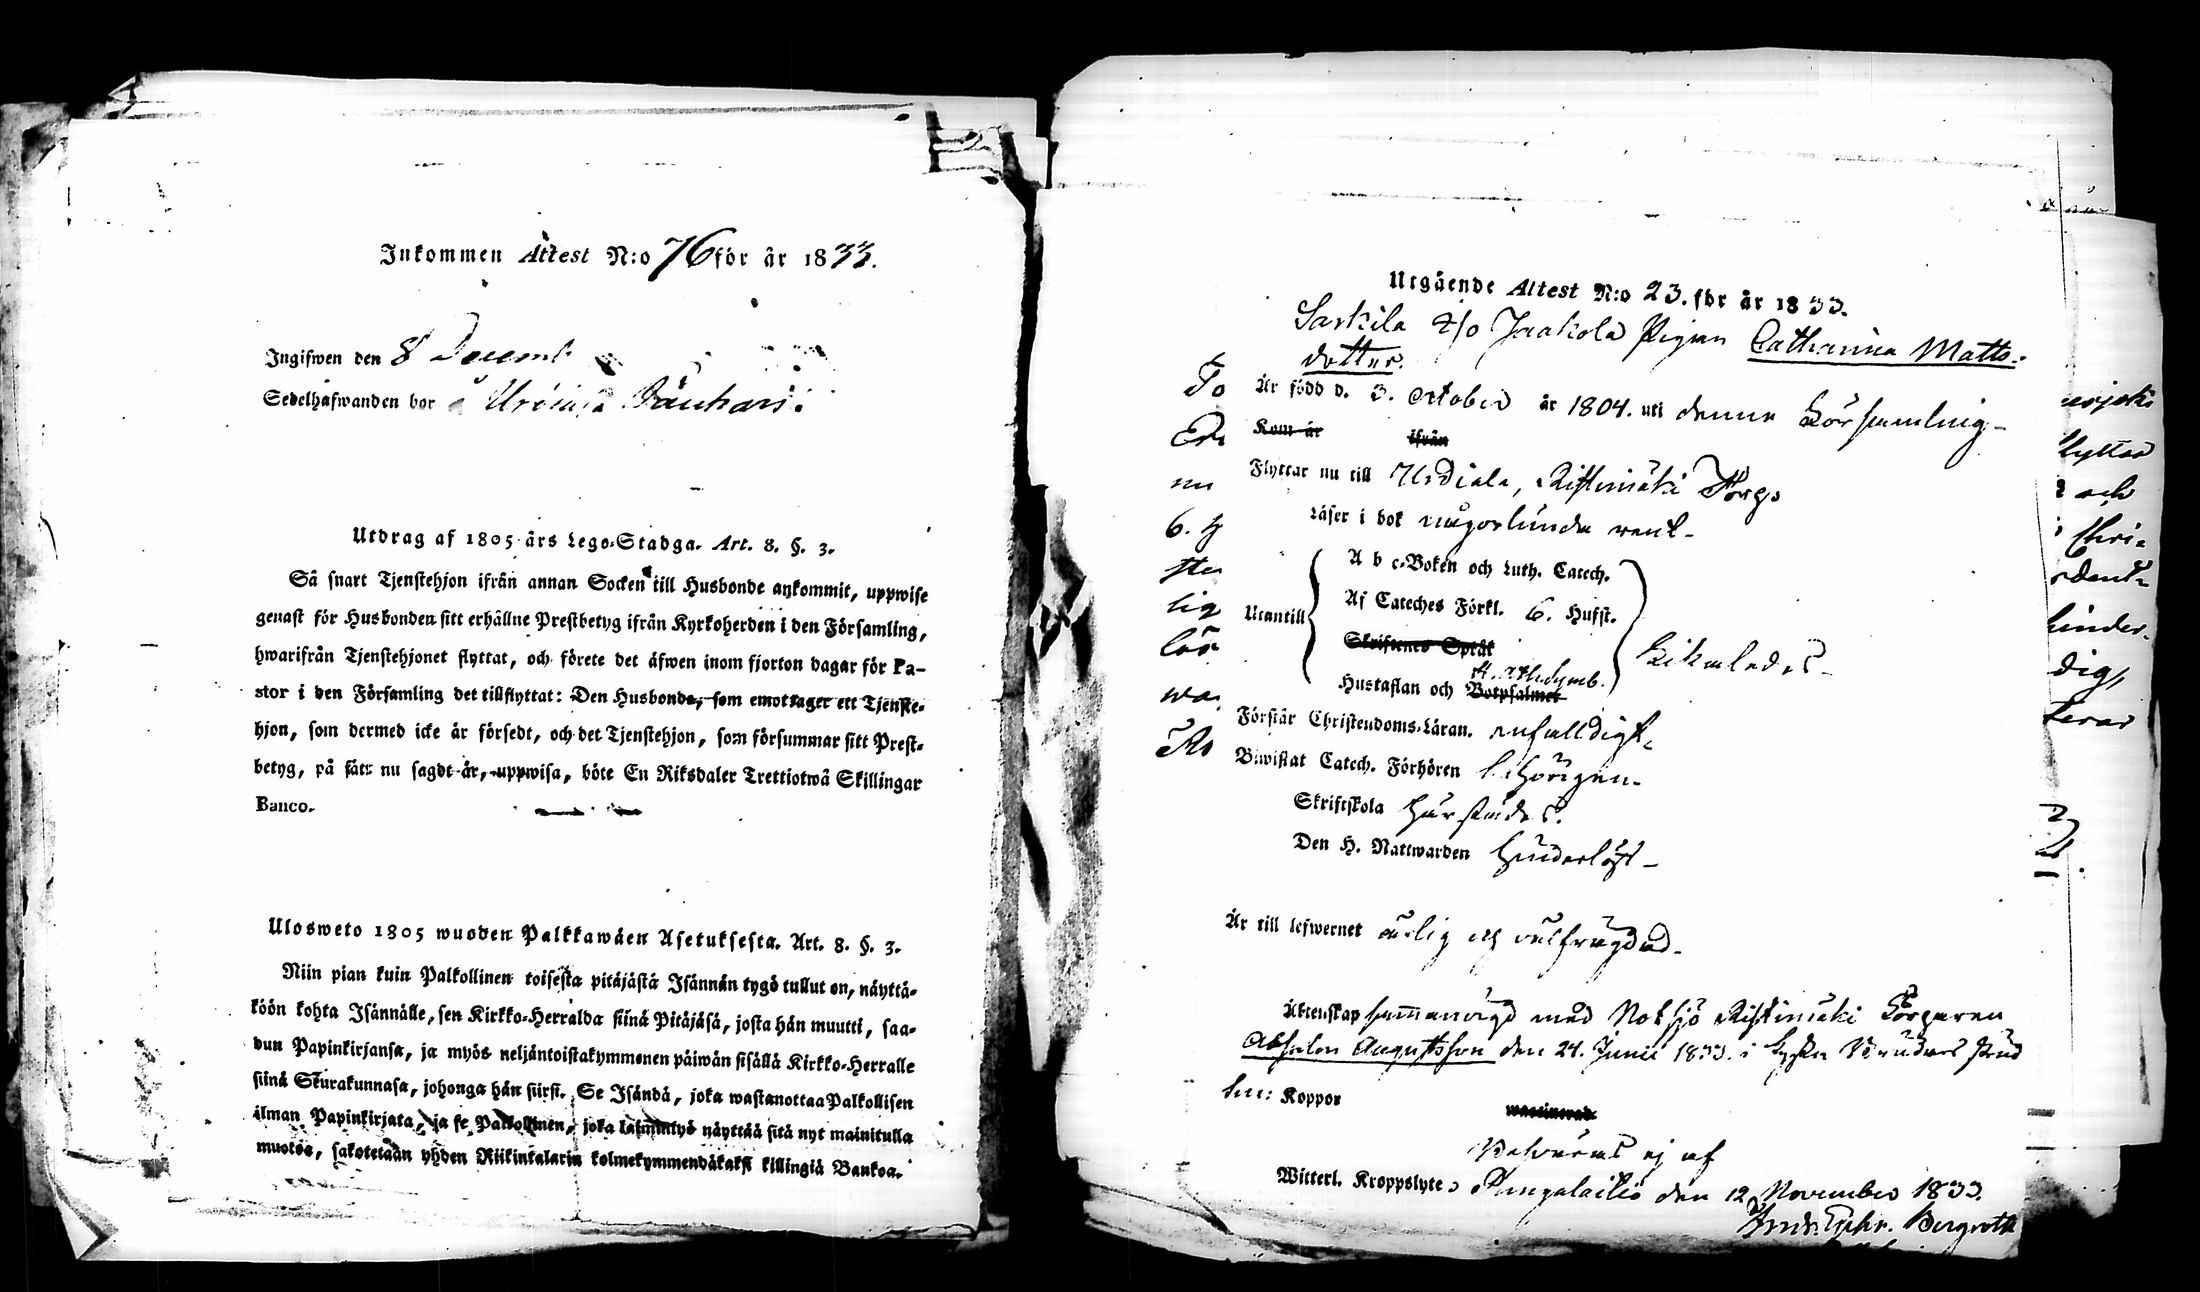 Inkommen Attest N:o 76 för år 1833.
Ingifwen den 8 Decemb
Sedelhafwanden bor
Utdrag af 1805 års Lego-Stadga. Art. 8. §. 3.
Så snart Tjenstehjon ifrån annan Socken till Husbonde ankommit, uppwise
genast för Husbonden sitt erhållne Prestbetyg ifrån Kyrkoherden i den Församling,
hwarifrån Tjenstehjonet flyttat, och förete det äfwen inom fjorton dagar för Pa-
stor i den Församling det tillflyttat: Den Husbonde, som emottager ett Tjenste-
hjon, som dermed icke är försedt, och det Tjenstehjon, som försummar sitt Prest-
betyg, på sätt nu sagdt är, uppwisa, böte En Riksdaler Trettiotwå Skillingar
Banco.
Ulosweto 1805 wuoden Palkkawäen Asetuksesta. Art. 8. §. 3.
Niin pian kuin Palkollinen toisesta pitäjästä Isännän tygö tullut on, näyttä-
köön kohta Isännälle, sen Kirkko-Herralda siinä Pitäjäsä, josta hän muutti, saa-
dun Papinkirjansa, ja myös neljäntoistakymmenen päiwän sisällä Kirkko-Herralle
siinä Seurakunnasa, johonga hän siirsi. Se Isändä, joka wastanottaa Palkollisen
ilman Papinkirjata, ja se Palkollinen, joka laiminlyö näyttää sitä nyt mainitulla
muotoa, sakotetaan yhden Riikinkalarin kolmekymmendäkaksi killingiä Bankoa.
Utgående Attest N:o 23. för år 1833.
Sarkila Jaakola Pigan Catharina Matts-
dotter.
Är född d. 3. October år 1804. uti denna Församling-
Kom år ifrån
Flyttar nu till Urdiala, Ristimäki Torp
Läser i bok någorlunda rent-
A b c-Boken och Luth. Catech.
Utantill Af Cateches Förkl. 6. Hufst.
Skriftenes Språk
Hustaflan och Botpsalmer Ath. Symb.
likaledes-
Förstår Christendoms-Läran. enfalldigt.
Biwistat Catech. Förhören behörigen.
Skriftskola härstädes.
Den H. Nattwarden hinderlöst-
Är till lefwernet ärlig och välfrägdad.
Äktenskap sammanvigd med Notsjö Ristimäki Torparen
Absalon Augustsson den 24. Junii 1833. i
Koppor waccinerad
Witterl. Kroppslyte den 12 November 1833.
Bergroth